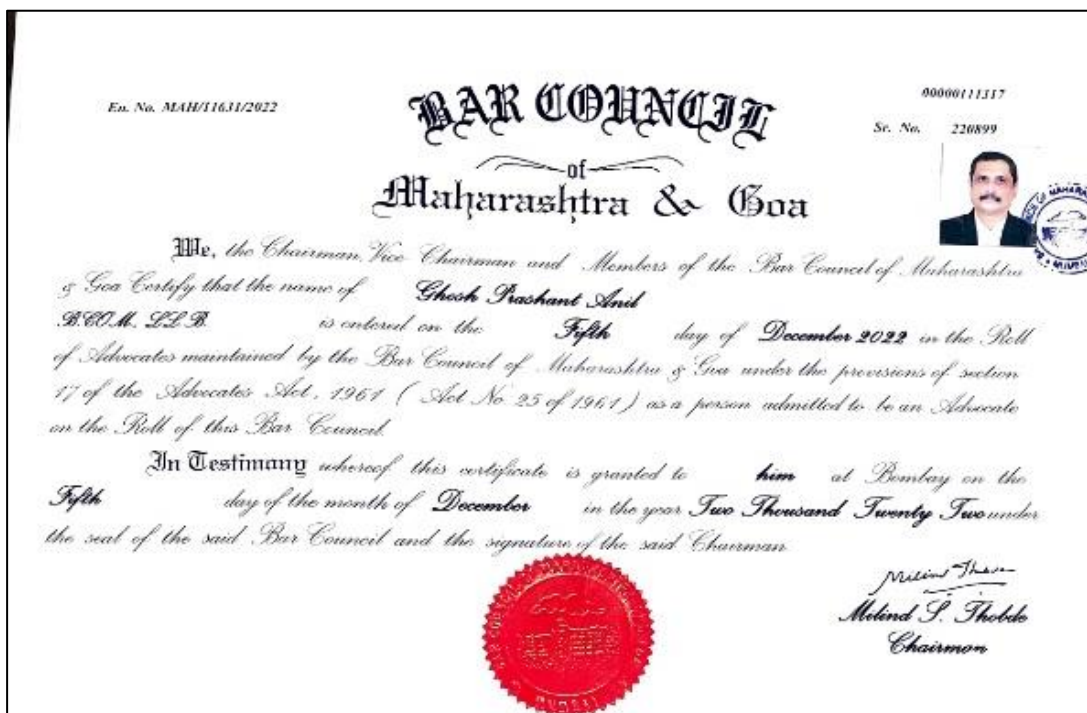 En. No. MAH/11631/2022
00000111317
Sr. No. 220899
BAR COUNCIL
of
Maharashtra & Goa
We, the Chairman, Vice Chairman and Members of the Bar Council of Maharashtra
& Goa Certify that the name of Ghosh Prashant Anil
B.COM. LL.B. is entered on the Fifth day of December 2022 in the Roll
of Advocates maintained by the Bar Council of Maharashtra & Goa under the provisions of section
17 of the Advocates Act, 1961 ( Act No. 25 of 1961 ) as a person admitted to be an Advocate
on the Roll of this Bar Council.
In Testimony whereof this certificate is granted to him at Bombay on the
Fifth day of the month of December in the year Two Thousand Twenty Two under
the seal of the said Bar Council and the signature of the said Chairman
Milind S. Thobde
Chairmon